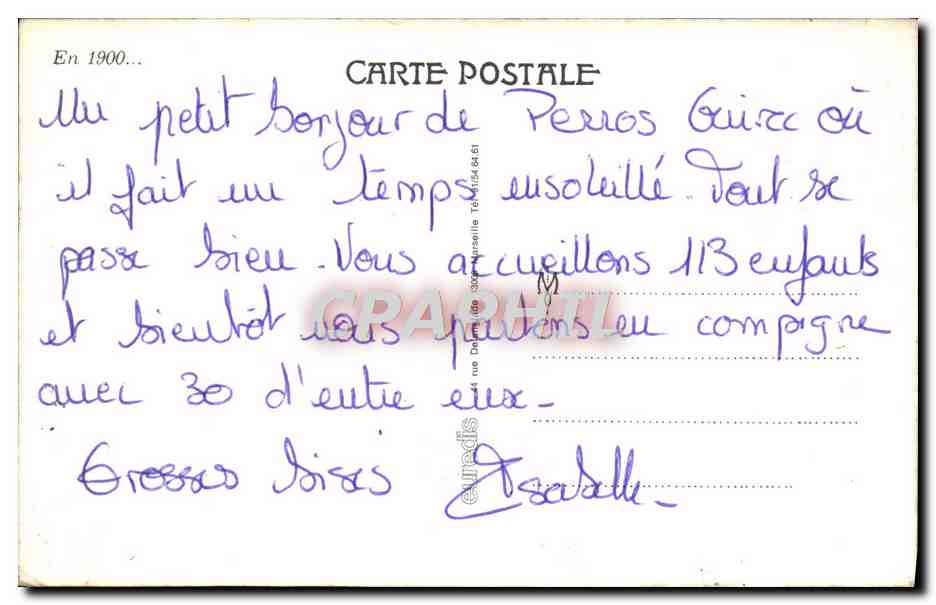 En 1900...
CARTE POSTALE
Un petit bonjour de Perros Guirec où
il fait un temps ensoleillé. Tout se
passe bien. Nous accueillons 113 enfants
et bientôt nous partons en compigne
avec 30 d'entre eux_
Grosses bises Isabelle_
euredis 44 rue 13008 Marseille Tél. 91/54.64.61
CPAPHIL